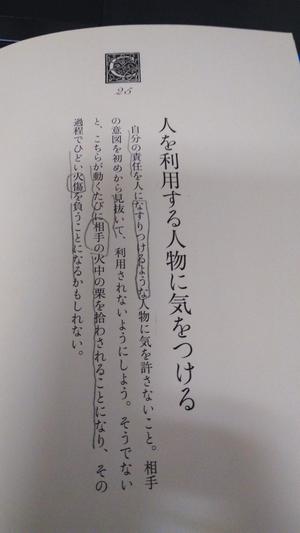 25
人を利用する人物に気をつける
自分の責任を人になすりつけるような人物に気を許さないこと。相手
の意図を初めから見抜いて、利用されないようにしよう。そうでない
と、こちらが動くたびに相手の火中の栗を拾わされることになり、その
過程でひどい火傷を負うことになるかもしれない。